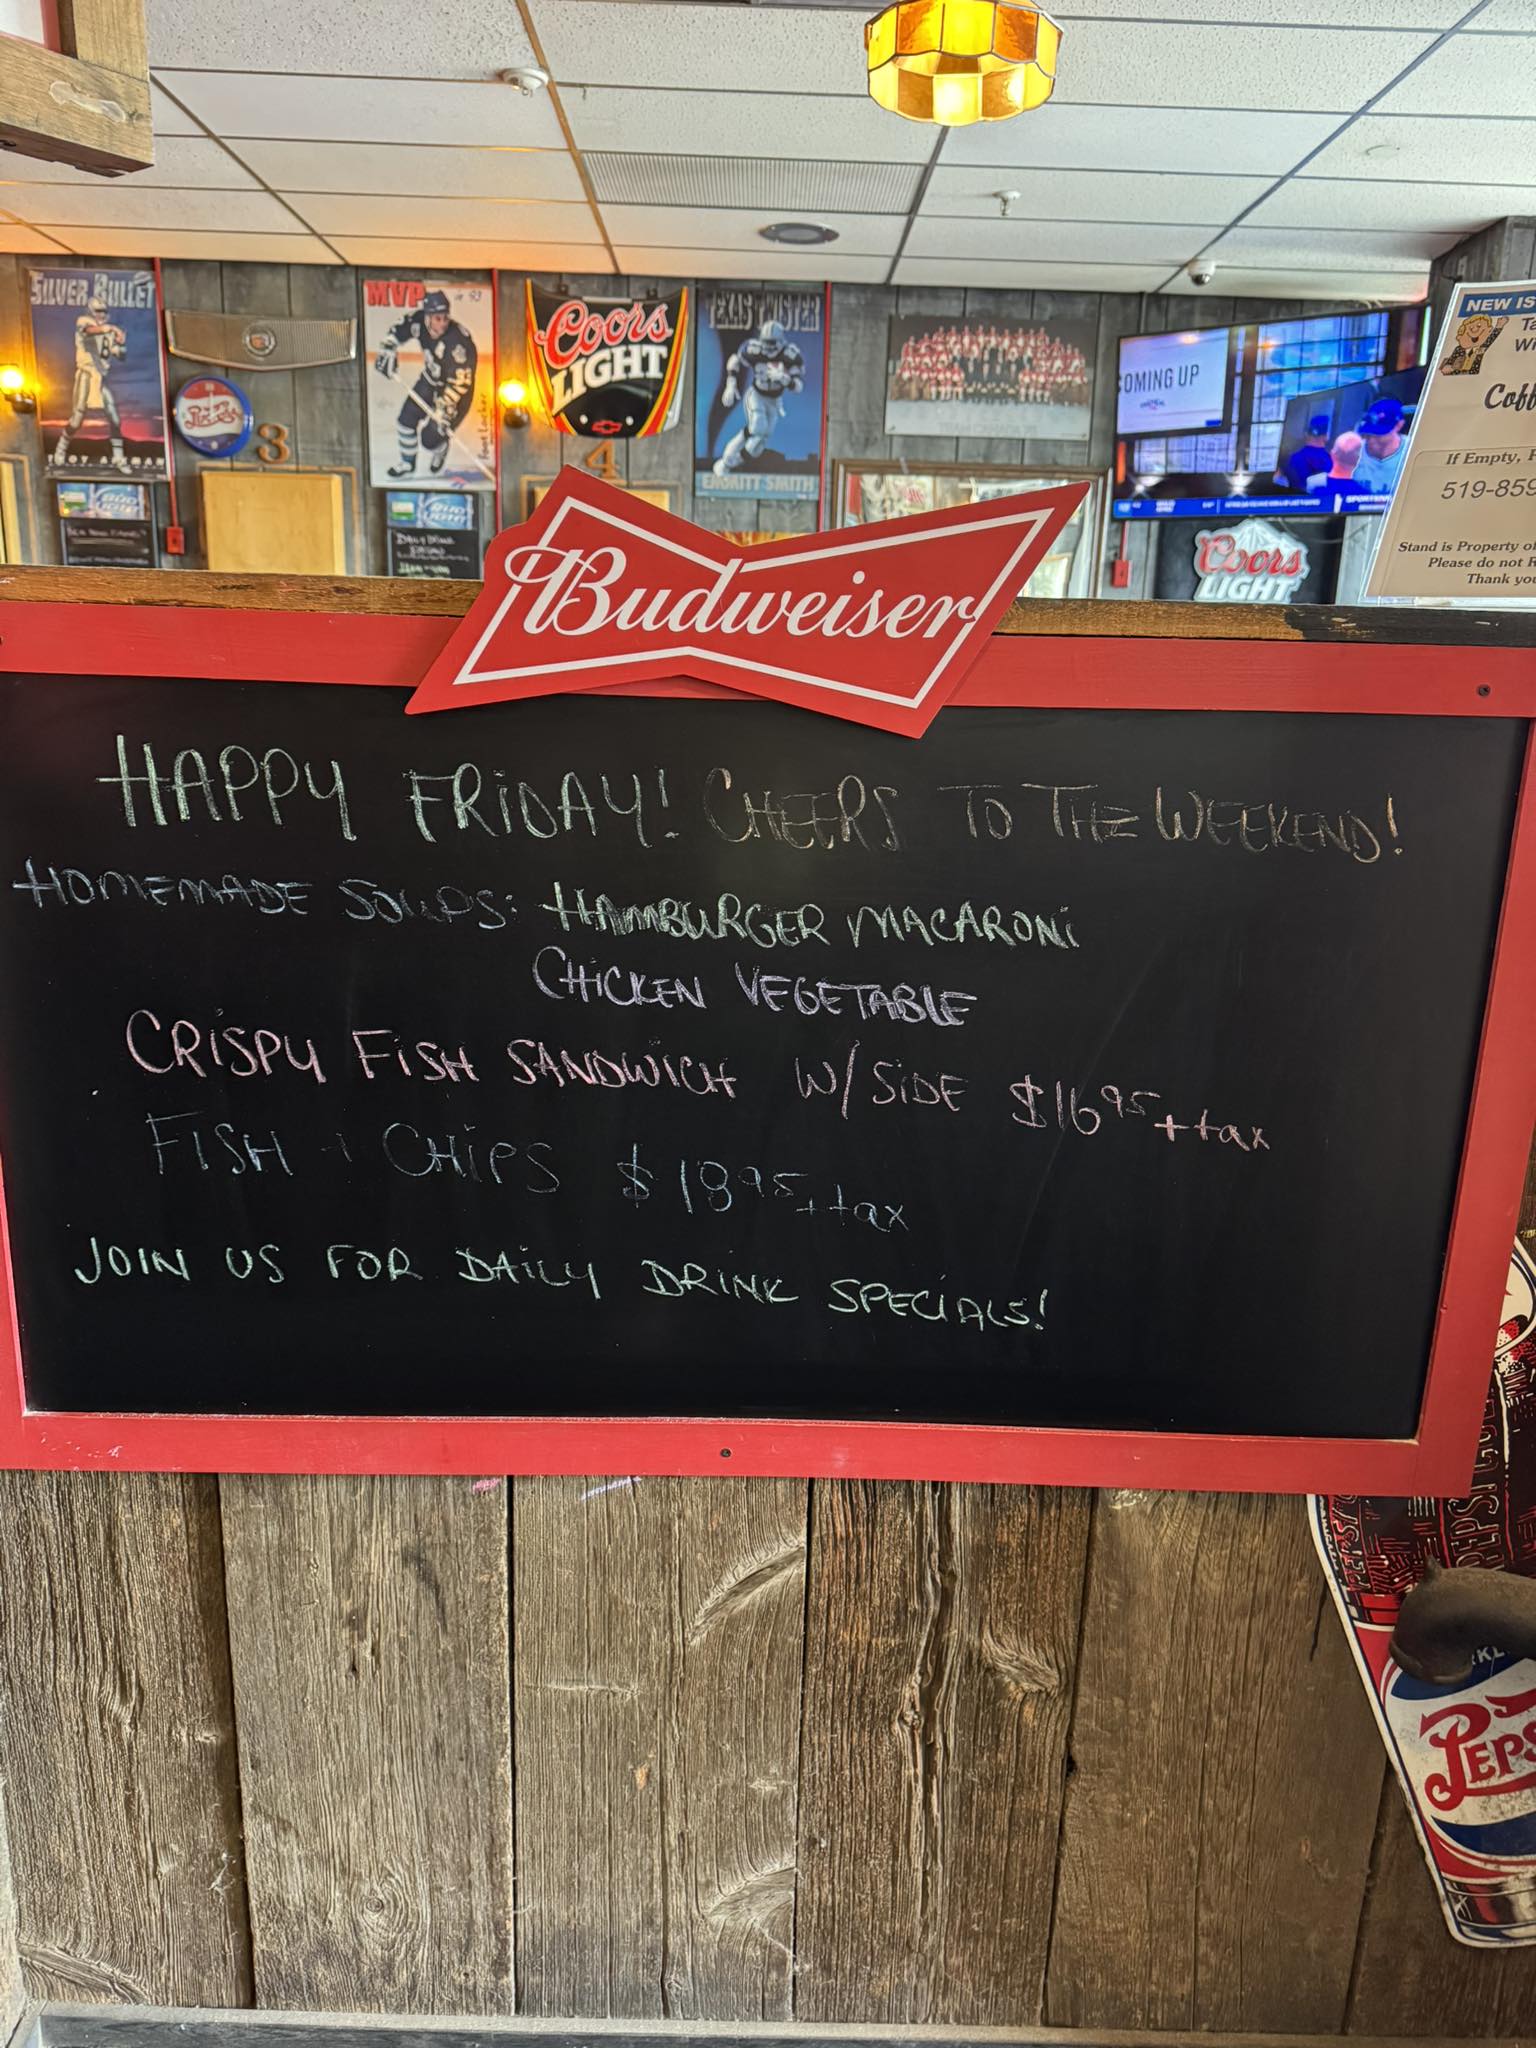 SILVER BULLET
TROY AIKMAN
PEPSI
3
MVP
Coors
LIGHT
4
TEXAS TWISTER
EMMITT SMITH
TEAM CANADA
OMING UP
Coors
LIGHT
NEW IS
If Empty,
519-859
Stand is Property of
Please do not R
Thank you
Budweiser
HAPPY FRIDAY! CHEERS TO THE WEEKEND!
HOMEMADE SOUPS: HAMBURGER MACARONI
CHICKEN VEGETABLE
CRISPY FISH SANDWICH W/SIDE $16.95 + tax
FISH + CHIPS $18.95 + tax
JOIN US FOR DAILY DRINK SPECIALS!
PEPSI
PEPS